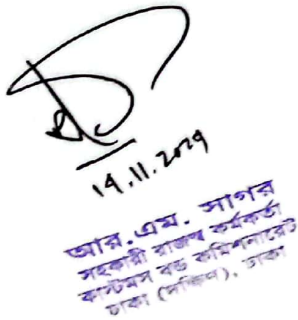 14.11.2019
আর.এম. সাগর
সহকারী রাজস্ব কর্মকর্তা
কাস্টমস বন্ড কমিশনারেট
ঢাকা (দক্ষিণ), ঢাকা